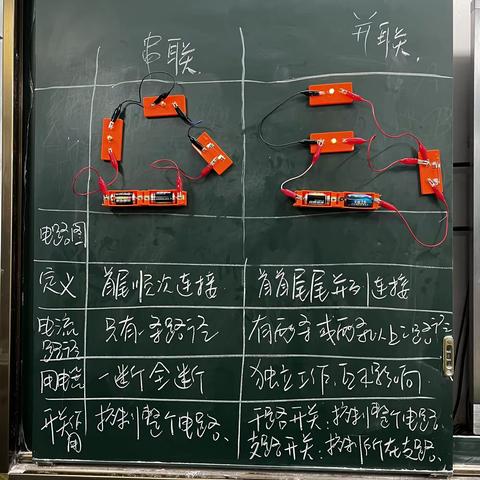 串联
并联
电路图
定义
首尾顺次连接
首首尾尾并列连接
电流路径
只有一条路径
有两条或两条以上路径
用电器
一断全断
独立工作,互不影响
开关作用
控制整个电路、
干路开关:控制整个电路
支路开关:控制所在支路、